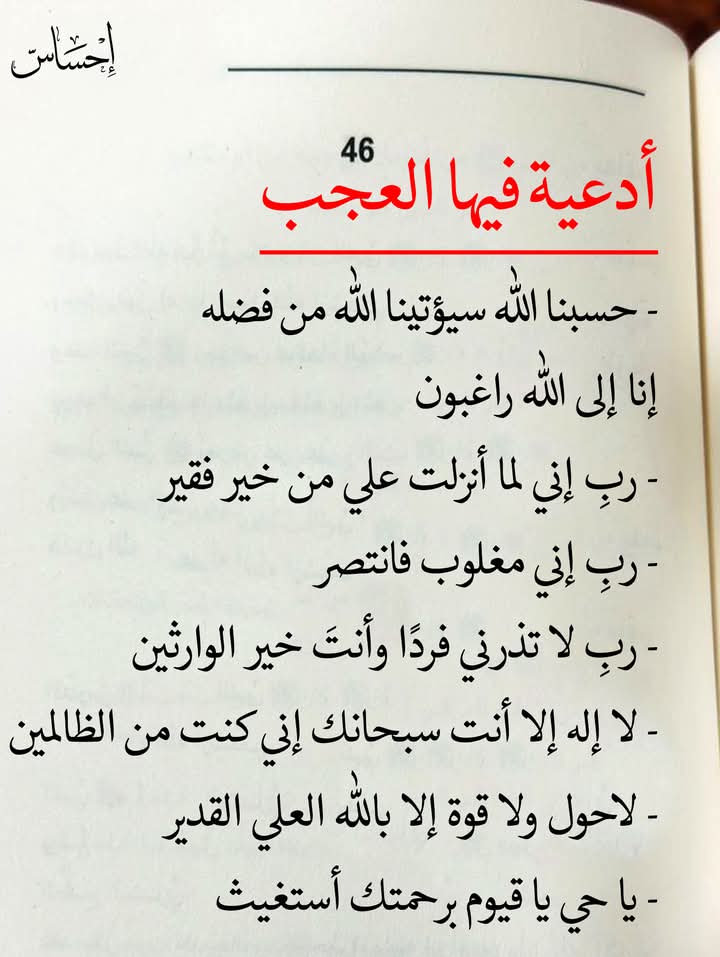 إِحْسَاسّ
46
أدعية فيها العجب
- حسبنا الله سيؤتينا الله من فضله
إنا إلى الله راغبون
- ربِ إني لما أنزلت علي من خير فقير
- ربِ إني مغلوب فانتصر
- ربِ لا تذرني فردًا وأنتَ خير الوارثين
- لا إله إلا أنت سبحانك إني كنت من الظالمين
- لاحول ولا قوة إلا بالله العلي القدير
- يا حي يا قيوم برحمتك أستغيث